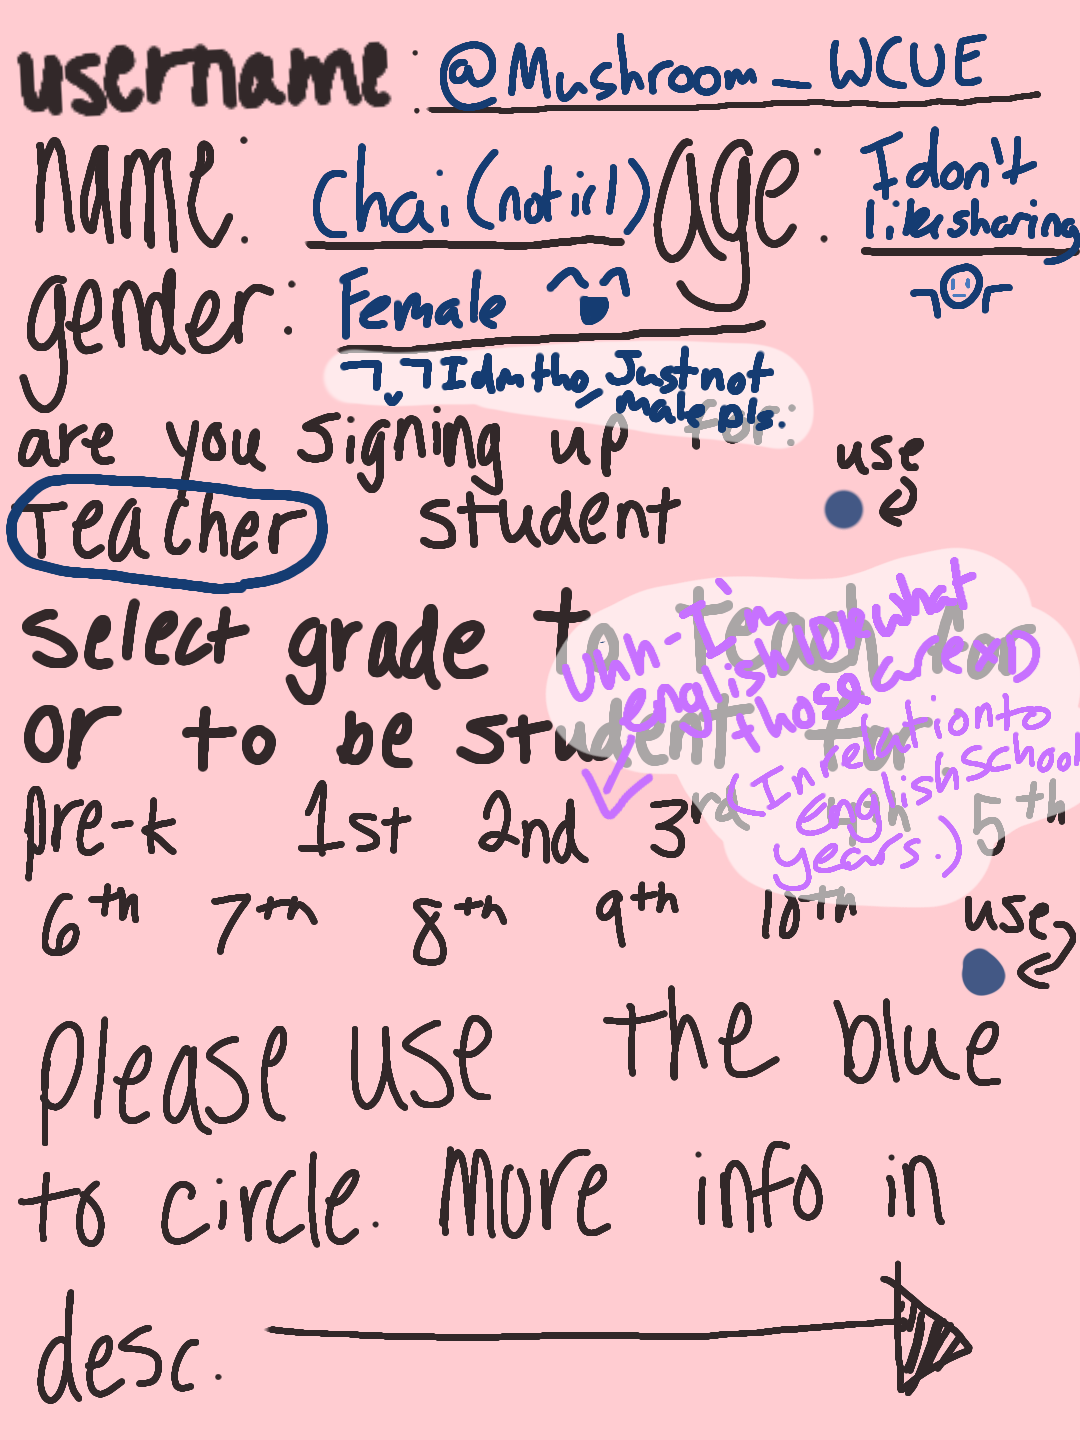 username: @Mushroom_WCUE
name: Chai (not irl) age: I don't like sharing
gender: Female
Idm tho, Just not male pls.
are you signing up for: use
Teacher student
select grade to teach for
or to be student for
Uhh- I'm english IDK what those are xD
(In relation to english school years.)
pre-k 1st 2nd 3rd 4th 5th
6th 7th 8th 9th 10th use
please use the blue
to circle. More info in
desc.